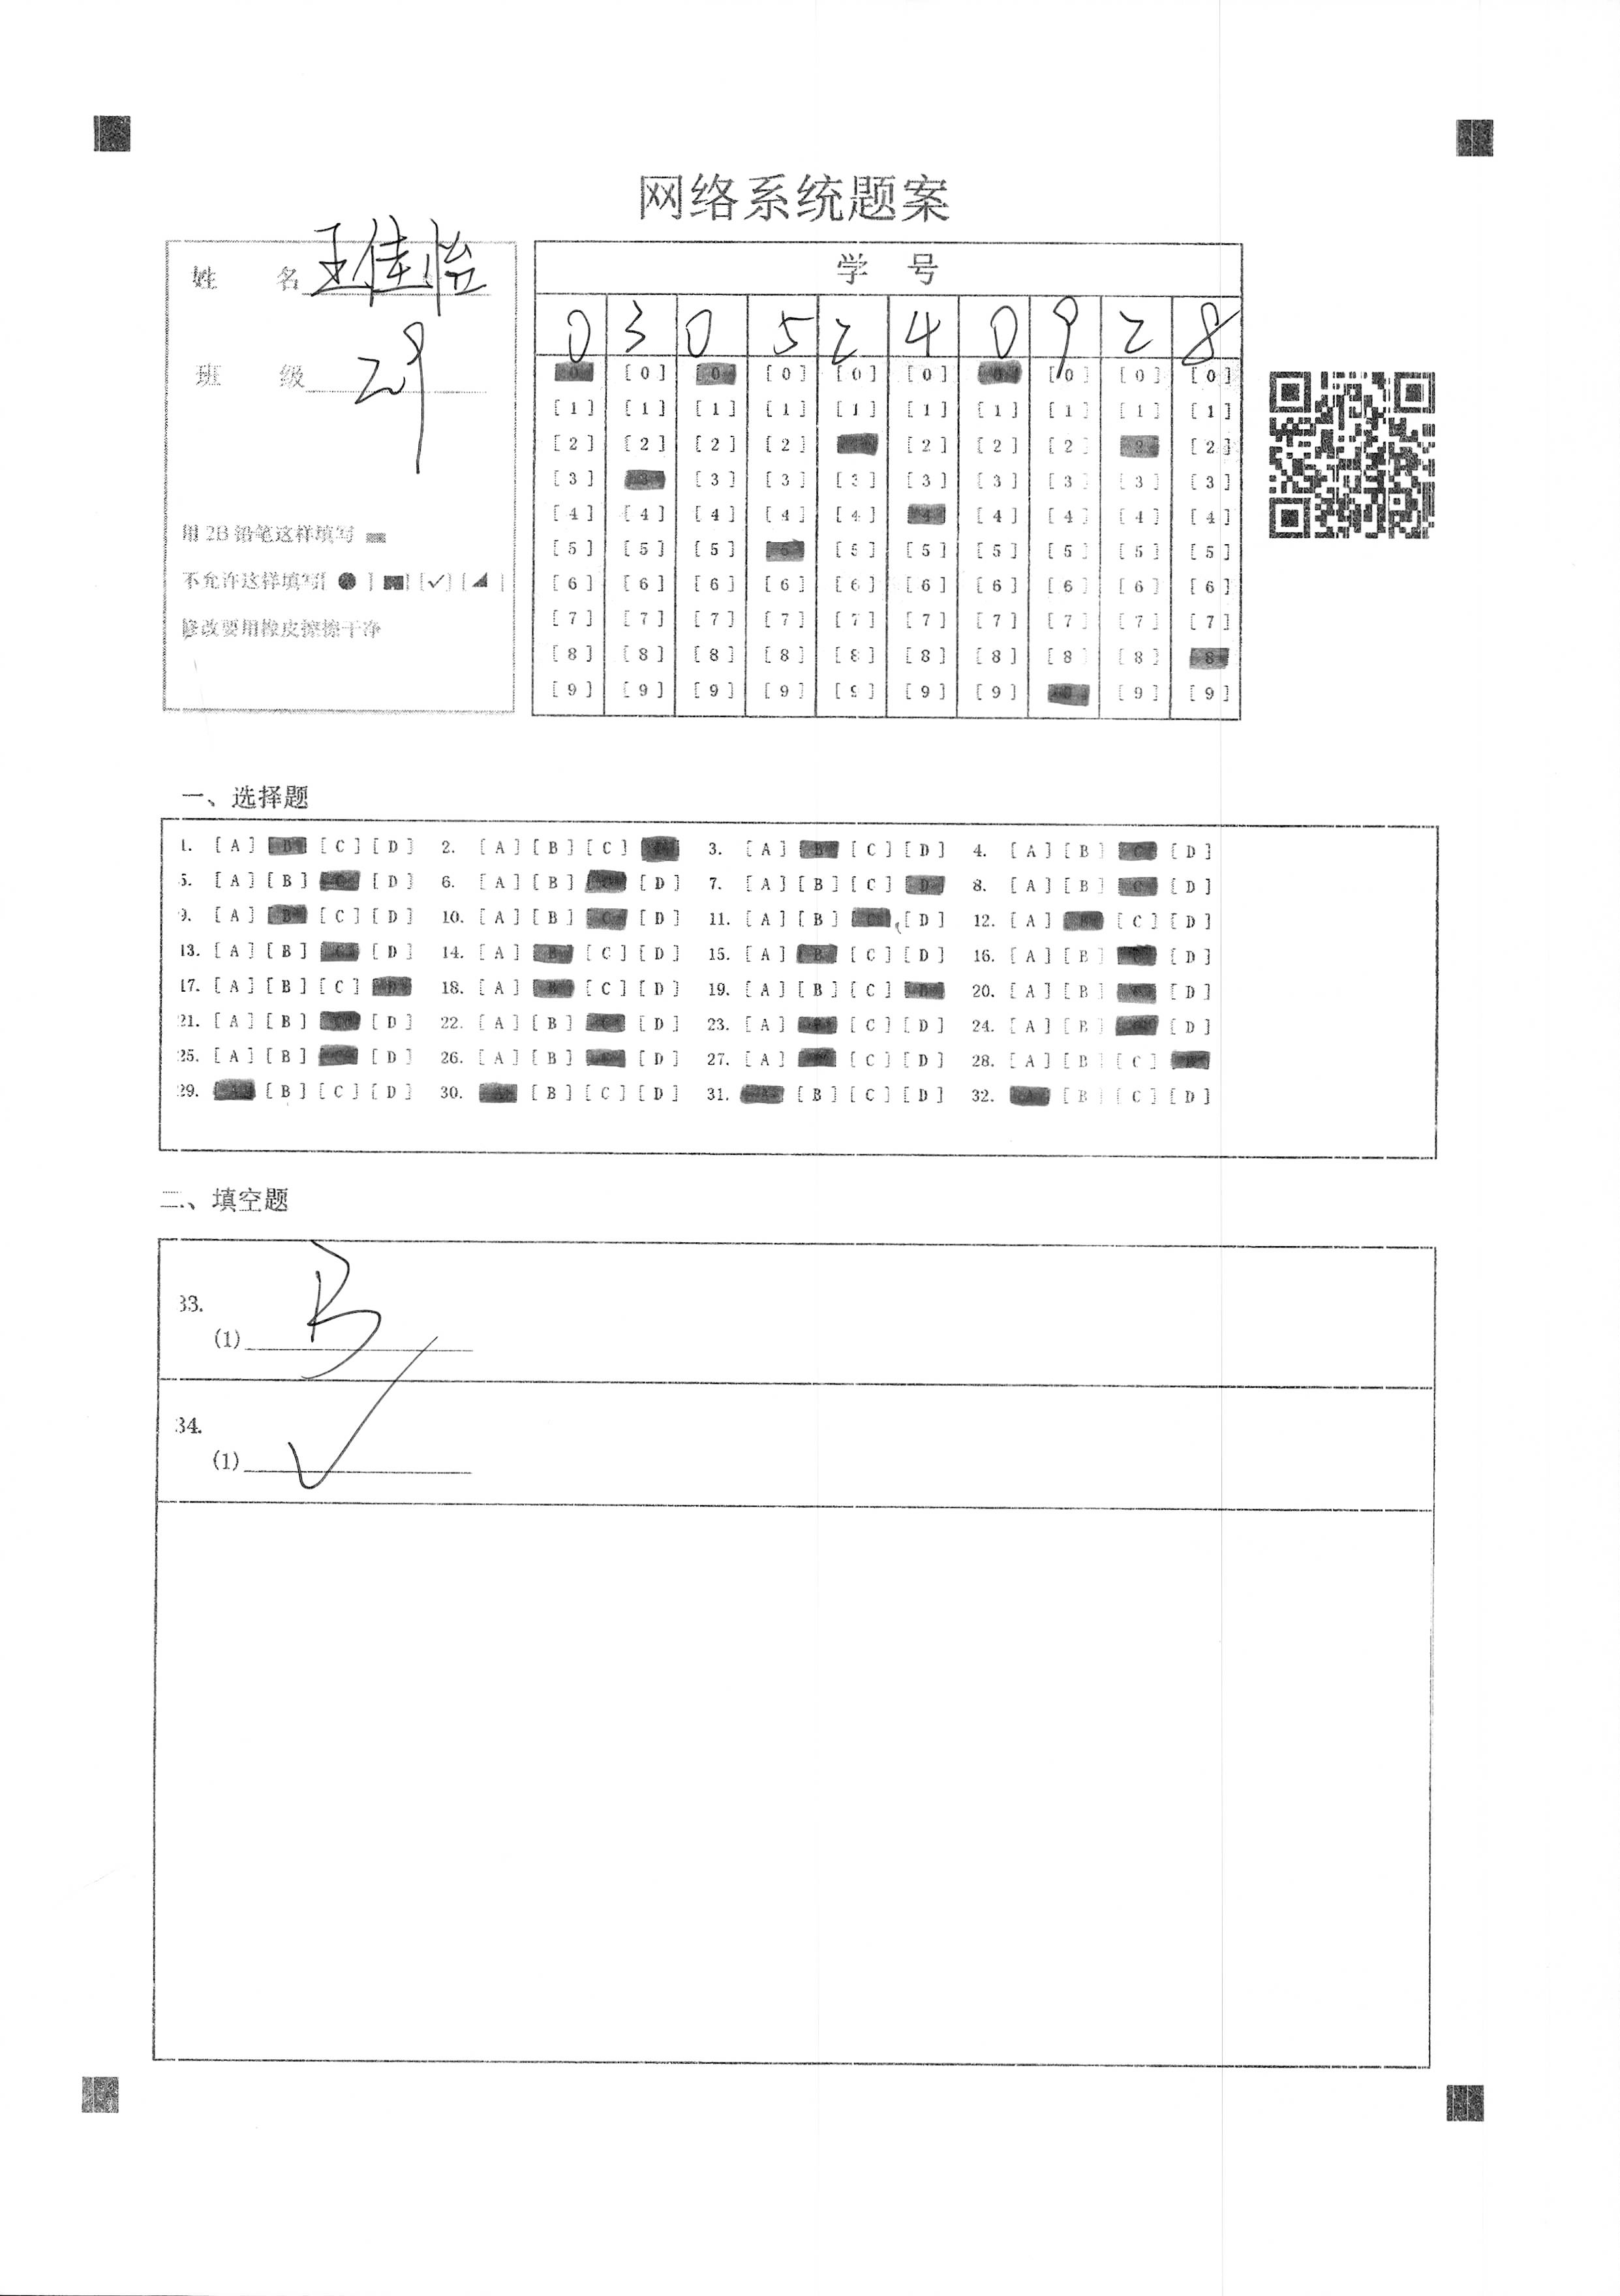 网络系统题案
姓 名 王佳怡
班 级 29
用 2B 铅笔这样填写
不允许这样填写[ ● ] [■] [✓] [◢ ]
修改要用橡皮擦擦干净
学 号
0 3 0 5 2 4 0 9 2 8
[0] [0] [0] [0] [0] [0] [0] [0] [0] [0]
[1] [1] [1] [1] [1] [1] [1] [1] [1] [1]
[2] [2] [2] [2] [2] [2] [2] [2] [2] [2]
[3] [3] [3] [3] [3] [3] [3] [3] [3] [3]
[4] [4] [4] [4] [4] [4] [4] [4] [4] [4]
[5] [5] [5] [5] [5] [5] [5] [5] [5] [5]
[6] [6] [6] [6] [6] [6] [6] [6] [6] [6]
[7] [7] [7] [7] [7] [7] [7] [7] [7] [7]
[8] [8] [8] [8] [8] [8] [8] [8] [8] [8]
[9] [9] [9] [9] [9] [9] [9] [9] [9] [9]
一、选择题
1. [A] [B] [C] [D] 2. [A] [B] [C] [D] 3. [A] [B] [C] [D] 4. [A] [B] [C] [D]
5. [A] [B] [C] [D] 6. [A] [B] [C] [D] 7. [A] [B] [C] [D] 8. [A] [B] [C] [D]
9. [A] [B] [C] [D] 10. [A] [B] [C] [D] 11. [A] [B] [C] [D] 12. [A] [B] [C] [D]
13. [A] [B] [C] [D] 14. [A] [B] [C] [D] 15. [A] [B] [C] [D] 16. [A] [B] [C] [D]
17. [A] [B] [C] [D] 18. [A] [B] [C] [D] 19. [A] [B] [C] [D] 20. [A] [B] [C] [D]
21. [A] [B] [C] [D] 22. [A] [B] [C] [D] 23. [A] [B] [C] [D] 24. [A] [B] [C] [D]
25. [A] [B] [C] [D] 26. [A] [B] [C] [D] 27. [A] [B] [C] [D] 28. [A] [B] [C] [D]
29. [A] [B] [C] [D] 30. [A] [B] [C] [D] 31. [A] [B] [C] [D] 32. [A] [B] [C] [D]
二、填空题
33.
(1) B
34.
(1) ✓